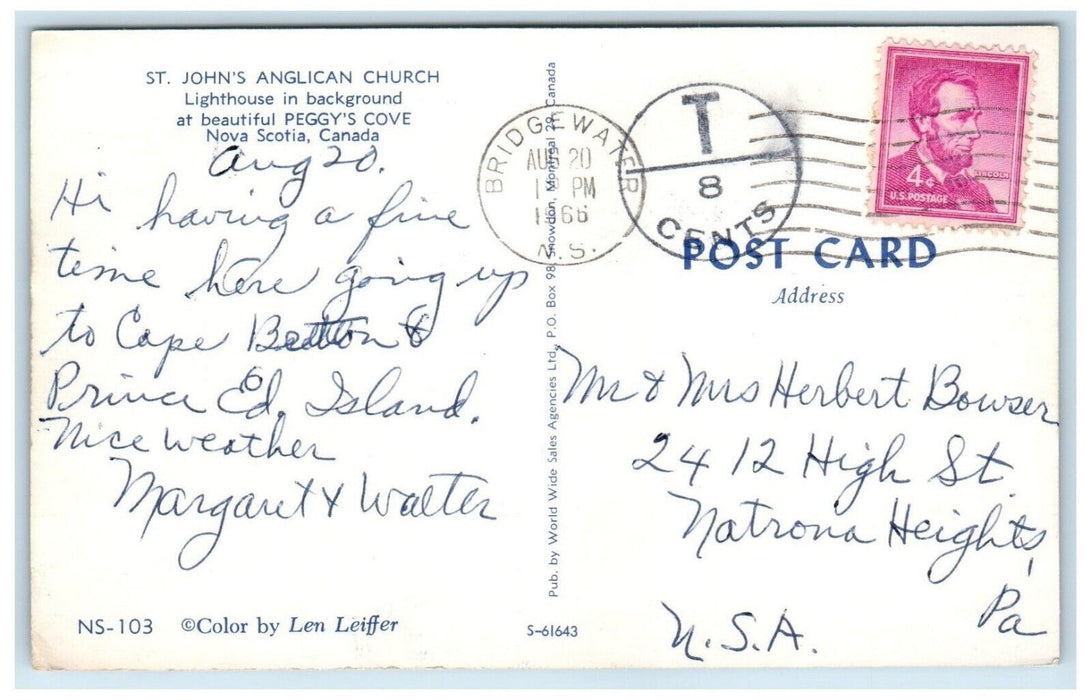 ST. JOHN'S ANGLICAN CHURCH
Lighthouse in background
at beautiful PEGGY'S COVE
Nova Scotia, Canada
Aug 20.
Hi having a fine
time here going up
to Cape Bretton &
Prince Ed. Island.
Nice weather
Margaret & Walter
NS-103 ©Color by Len Leiffer
Pub. by World Wide Sales Agencies Ltd., P.O. Box 98, Snowdon, Montreal 29, Canada
S-61643
BRIDGEWATER
AUG 20
PM
1966
N.S.
T
8
CENTS
4¢
LINCOLN
U.S. POSTAGE
POST CARD
Address
Mr & Mrs Herbert Bowser
2412 High St.
Natrona Heights,
Pa
U.S.A.